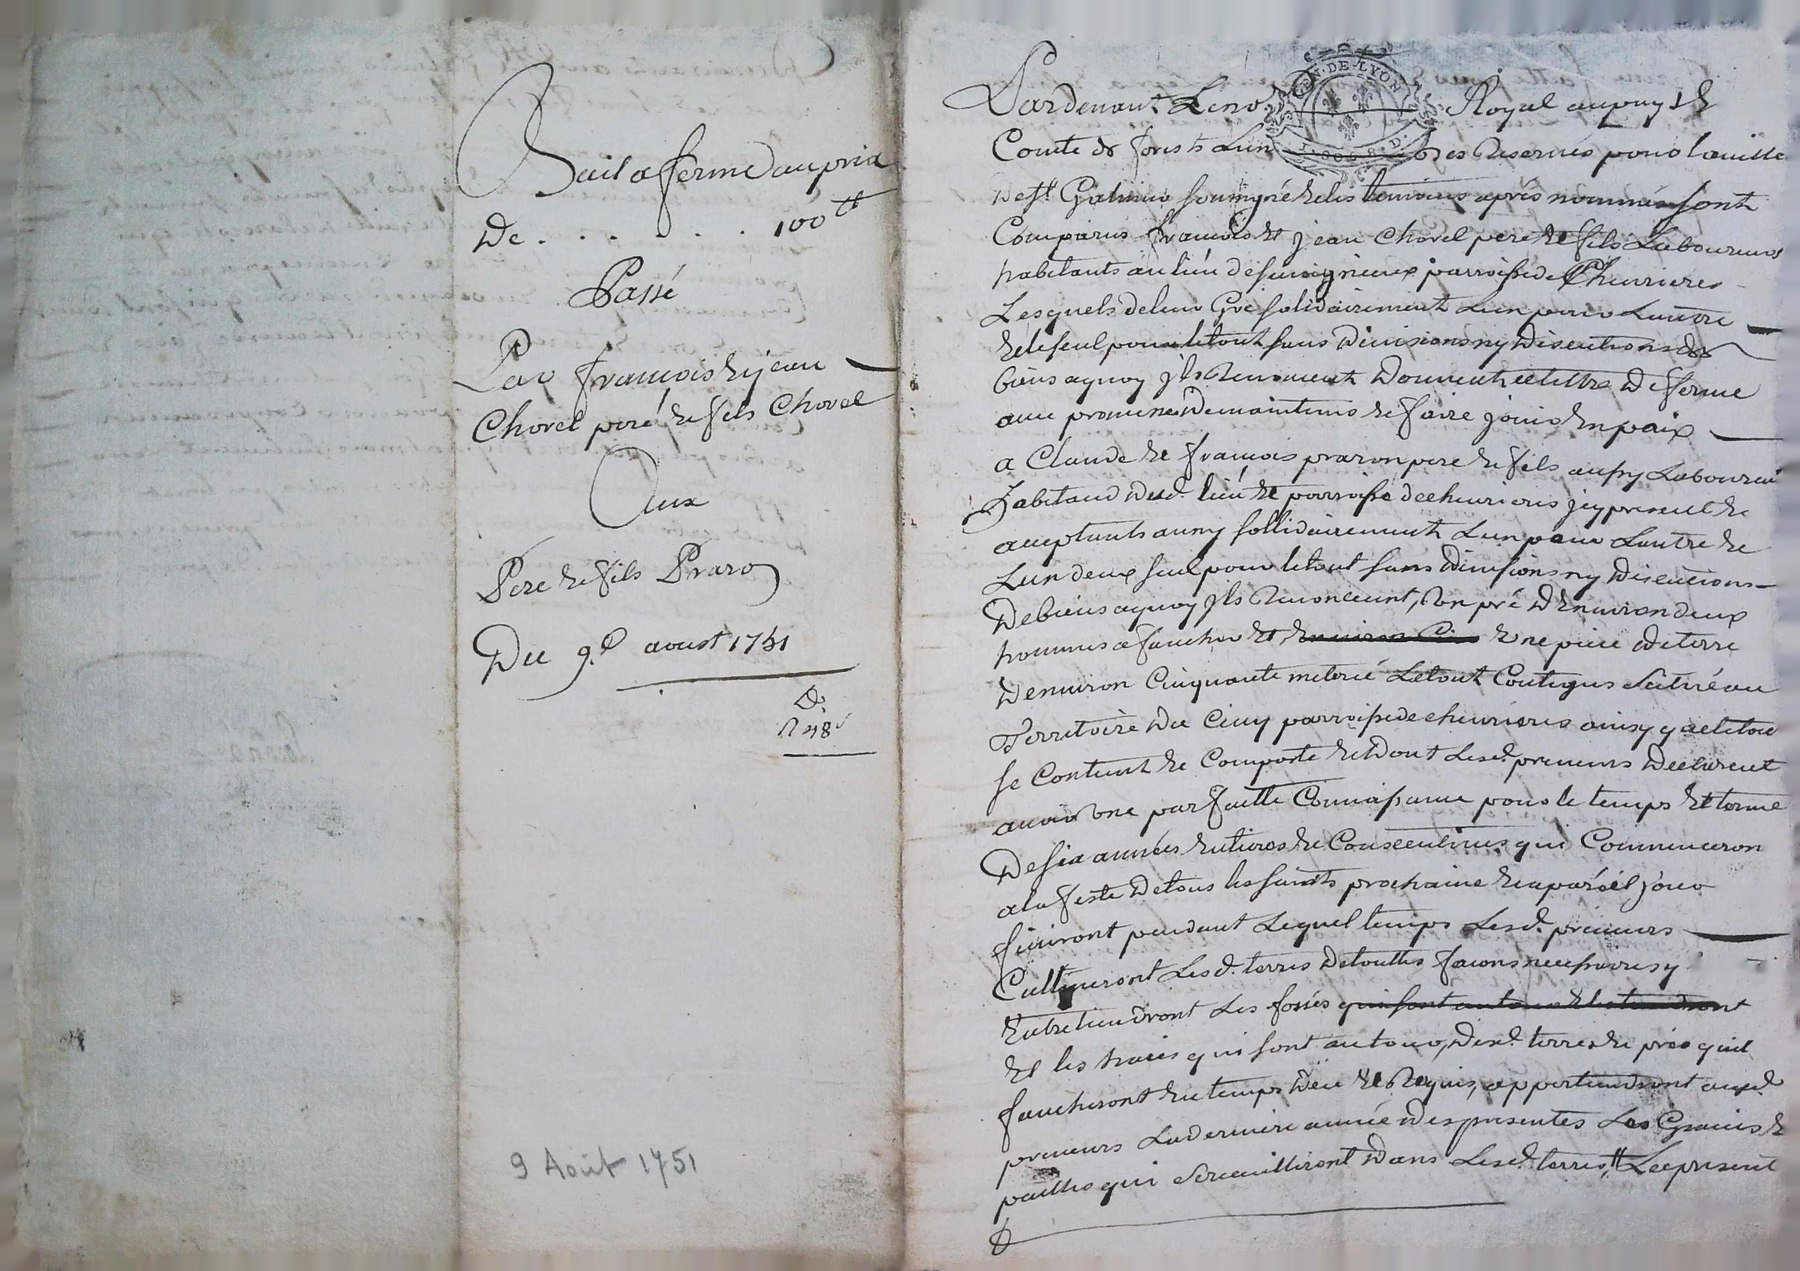 Bail a ferme au prix
De . . . . . . . 100 tt
Passé
Par françois et jean
Chovel pere et fils Chovel
Aux
Pere et fils Praro
Du 9e aoust 1751
R 48s
9 Août 1751
GEN. DE LYON
Pardevant Le no Royal au puy
Comté de forests L'un des Reservés pour la ville
de St Galmier soussigné et les temoins aprés nommés sont
Comparus françois et jean Chovel pere et fils Laboureurs
habitants au lieu de parroisse de Chevrieres
Lesquels de leur Gré solidairement L'un pour L'autre
et le seul pour le tout sans Divisions ny Discutions de
biens a quoy ils Renoncent Donnent a tiltre De ferme
avec promesse De maintenir et faire jouir En paix
a Claude et françois praron pere et fils aussy Laboureur
habitand dud. lieu et parroisse de chevrieres jcy present et
acceptants aussy sollidairement L'un pour L'autre et
L'un deux seul pour le tout sans Divisions ny Discutions
De biens a quoy ils Renoncent, Un pré D'Environ deux
hommes a faucher et Une piece De terre
D'environ Cinquante meterié Le tout Contigus Scitué au
Territoire Du parroisse de chevrieres ainsy que le tout
se Contient et Comporte et Dont Lesd. preneurs Declarent
avoir Une parfaitte Connoissance pour le temps Et terme
De six années Entieres et Consecutives qui Commenceron
a la feste De tous les saints prochaine et a pareil jour
finiront pendant Lequel temps Lesd. preneurs
Cultiveront Lesd. terres De touttes facons necessaires y
Entretiendront Les fossés qui sont autour
Et les haies qui sont autour, Desd. terres et prés quil
faucheront En temps Deu Et Requis, appartiendront auxd
preneurs La derniere année Des presentes Les Grains et
pailles qui se recuilliront Dans Lesd. terres, Le present